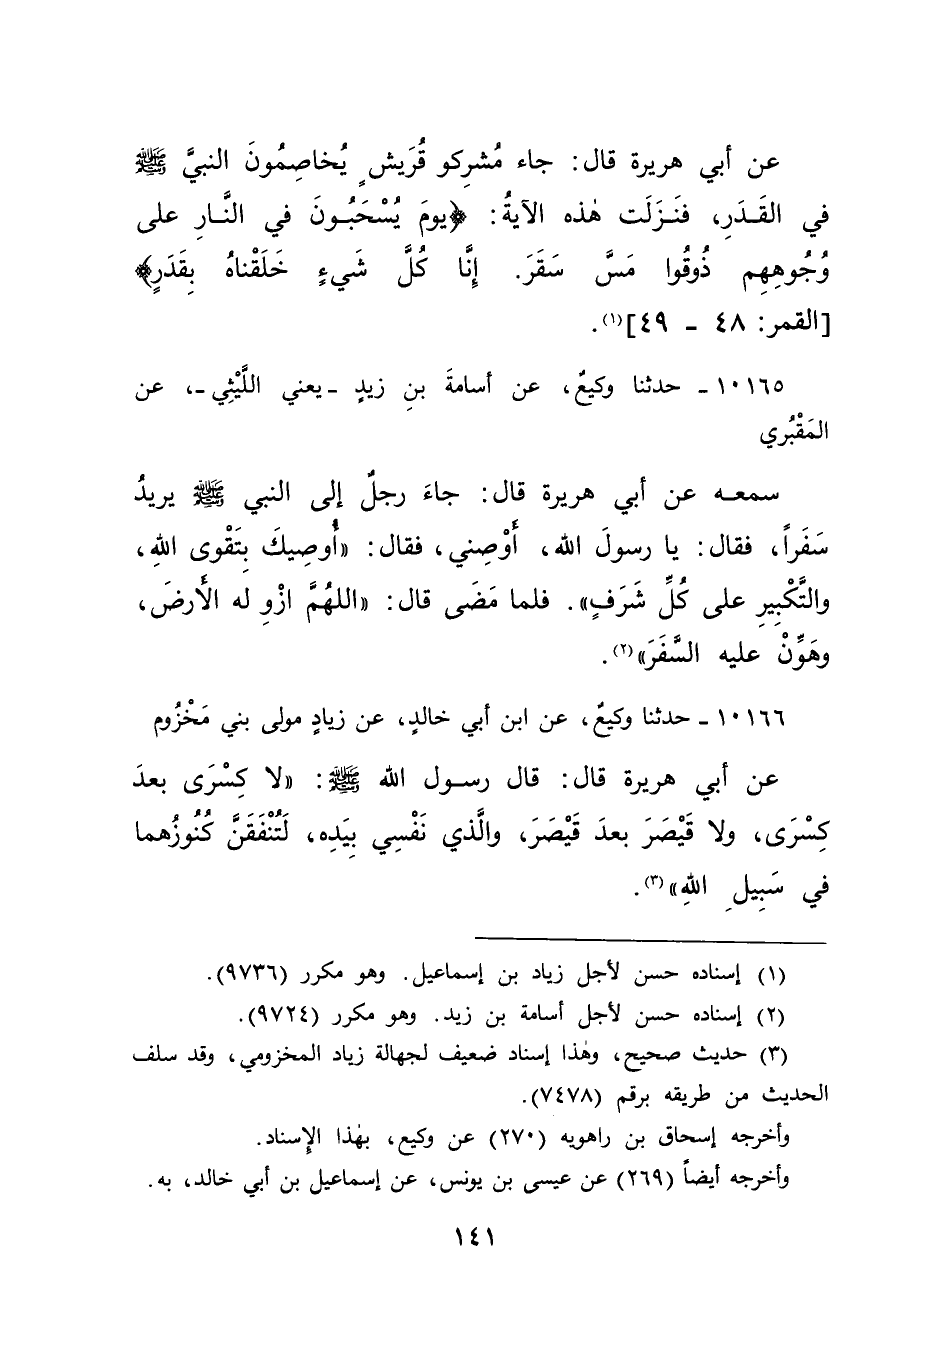 عن أبي هريرة قال: جاء مُشركو قُرَيش يُخاصِمُونَ النبيَّ ﷺ
في القَـدَرِ، فنَـزَلَت هٰذه الآيةُ: ﴿يومَ يُسْحَبُـونَ في النَّـارِ على
وُجُوهِهِم ذُوقُوا مَسَّ سَقَرَ. إنَّا كُلَّ شَيءٍ خَلَقْناهُ بِقَدَرٍ﴾
[القمر: ٤٨ - ٤٩](١).
١٠١٦٥ - حدثنا وكيعٌ، عن أسامةَ بنِ زيدٍ - يعني اللَّيْثِي -، عن
المَقْبُري
سمعـه عن أبي هريرة قال: جاءَ رجلٌ إلى النبي ﷺ يريدُ
سَفَراً، فقال: يا رسولَ الله، أَوْصِني، فقال: «أُوصِيكَ بِتَقْوى اللهِ،
والتَّكْبِيرِ على كُلِّ شَرَفٍ». فلما مَضَى قال: «اللهُمَّ ازْوِ له الأَرضَ،
وهَوِّنْ عليه السَّفَرَ»(٢).
١٠١٦٦ - حدثنا وكيعٌ، عن ابن أبي خالدٍ، عن زيادٍ مولى بني مَخْزُوم
عن أبي هريرة قال: قال رسـول الله ﷺ: «لا كِسْرَى بعدَ
كِسْرَى، ولا قَيْصَرَ بعدَ قَيْصَرَ، والَّذي نَفْسِي بِيَدِه، لَتُنْفَقَنَّ كُنُوزُهما
في سَبِيلِ اللهِ»(٣).
(١) إسناده حسن لأجل زياد بن إسماعيل. وهو مكرر (٩٧٣٦).
(٢) إسناده حسن لأجل أسامة بن زيد. وهو مكرر (٩٧٢٤).
(٣) حديث صحيح، وهٰذا إسناد ضعيف لجهالة زياد المخزومي، وقد سلف
الحديث من طريقه برقم (٧٤٧٨).
وأخرجه إسحاق بن راهويه (٢٧٠) عن وكيع، بهٰذا الإسناد.
وأخرجه أيضاً (٢٦٩) عن عيسى بن يونس، عن إسماعيل بن أبي خالد، به.
١٤١